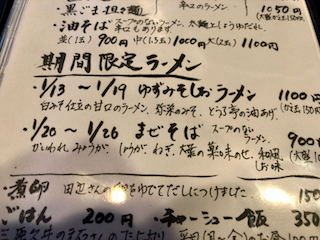 ・黒ごま担々麺
辛口のラーメン 1050円
(大盛は150円)
・油そば スープのないラーメン、太麺としょうゆだれ、
辛口もあります。
並(1玉) 900円 中(1.5玉) 1000円 大(2玉) 1100円
期間限定ラーメン
・1/13 〜 1/19 ゆずみそしおラーメン 1100円
白みそ仕立の甘口のラーメン、 の油あげ
・1/20 〜 1/26 まぜそば スープのない
ラーメン、 900円
かいわれ、みょうが、しょうが、ねぎ、大葉の薬味のせ、和風
しお味
・煮卵 田辺さんの卵をゆでてだしにつけました 150
ごはん 200円 ・チャーシュー飯 350